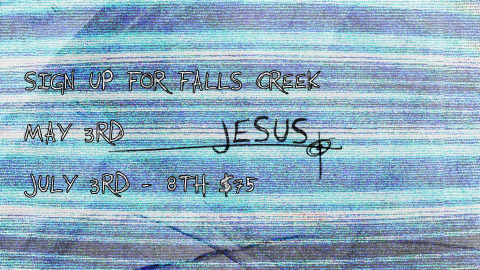 SIGN UP FOR FALLS CREEK
MAY 3RD
JESUS
JULY 3RD - 8TH $75